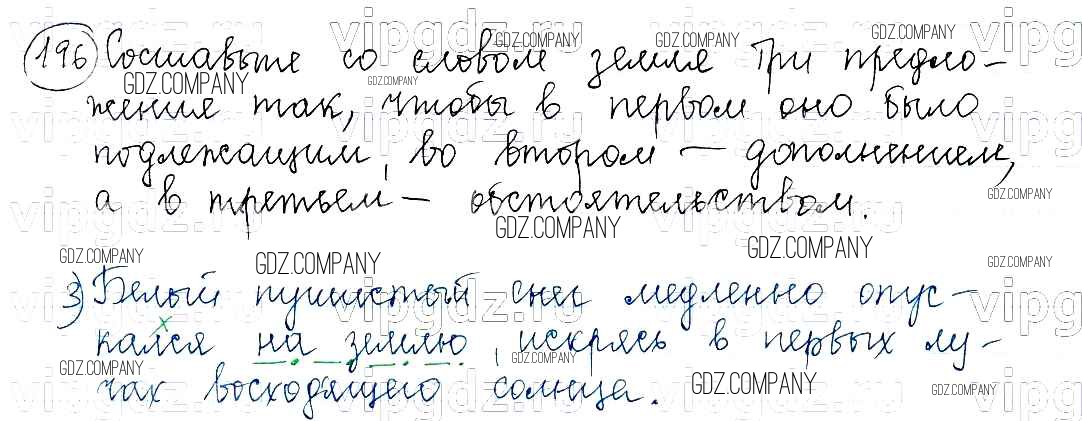 196 Составьте со словом земля три предло-
жения так, чтобы в первом оно было
подлежащим, во втором — дополнением,
а в третьем — обстоятельством.
3) Белый пушистый снег медленно опус-
х
кался на землю, искрясь в первых лу-
чах восходящего солнца.